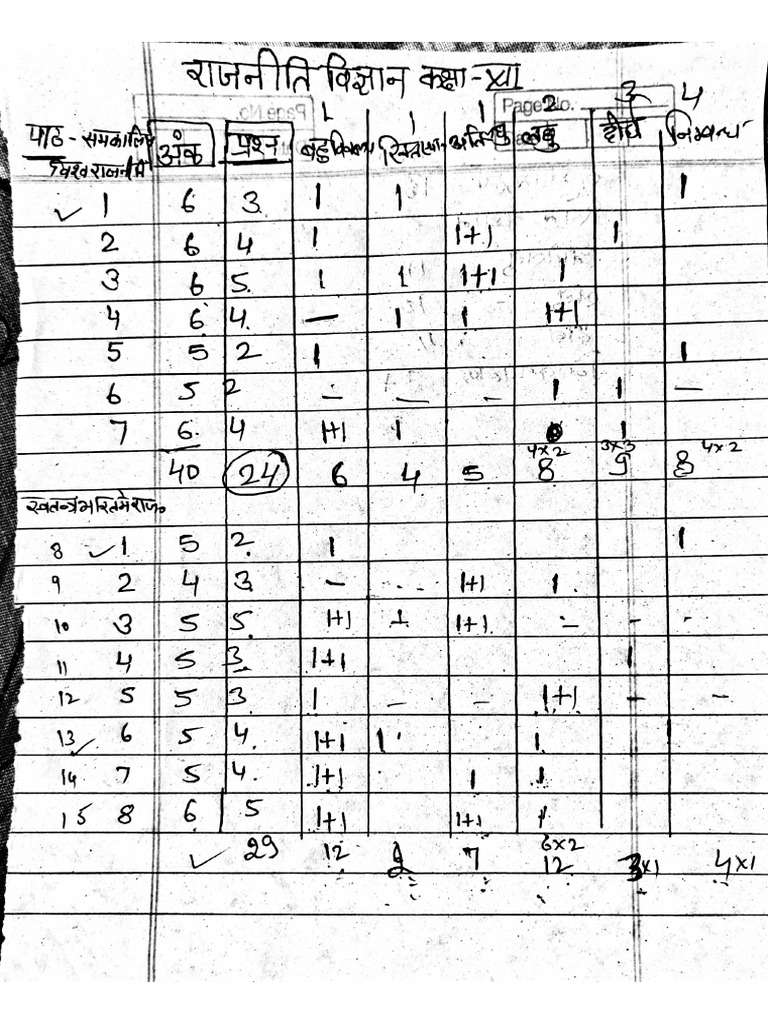 राजनीति विज्ञान कक्षा-XII
1 1 1 2 3 4
Page No.
पाठ - समकालिन अंक प्रश्न बहुविकल्प रिक्तस्थान अतिलघु लघु दीर्घ निबन्ध
विश्व राजनीति में
✓ 1 6 3. 1 1 1
2 6 4 1 1+1 1
3 6 5. 1 1 1+1 1
4 6 4. — 1 1 1+1
5 5 2 1 1
6 5 2 – – – 1 1 –
7 6. 4 1+1 1 1
4x2 3x3 4x2
40 24 6 4 5 8 9 8
स्वतन्त्र भारत में राज०
8 ✓ 1 5 2. 1 1
9 2 4 3 – ... 1+1 1
10 3 5 5. 1+1 1 1+1 – – -
11 4 5 3. 1+1 1
12 5 5 3. 1 – – 1+1 – –
13 ✓ 6 5 4. 1+1 1 1
14 7 5 4. 1+1 1 1
15 8 6 5 1+1 1+1 1
6x2
✓ 29 12 2 7 12 3x1 4x1